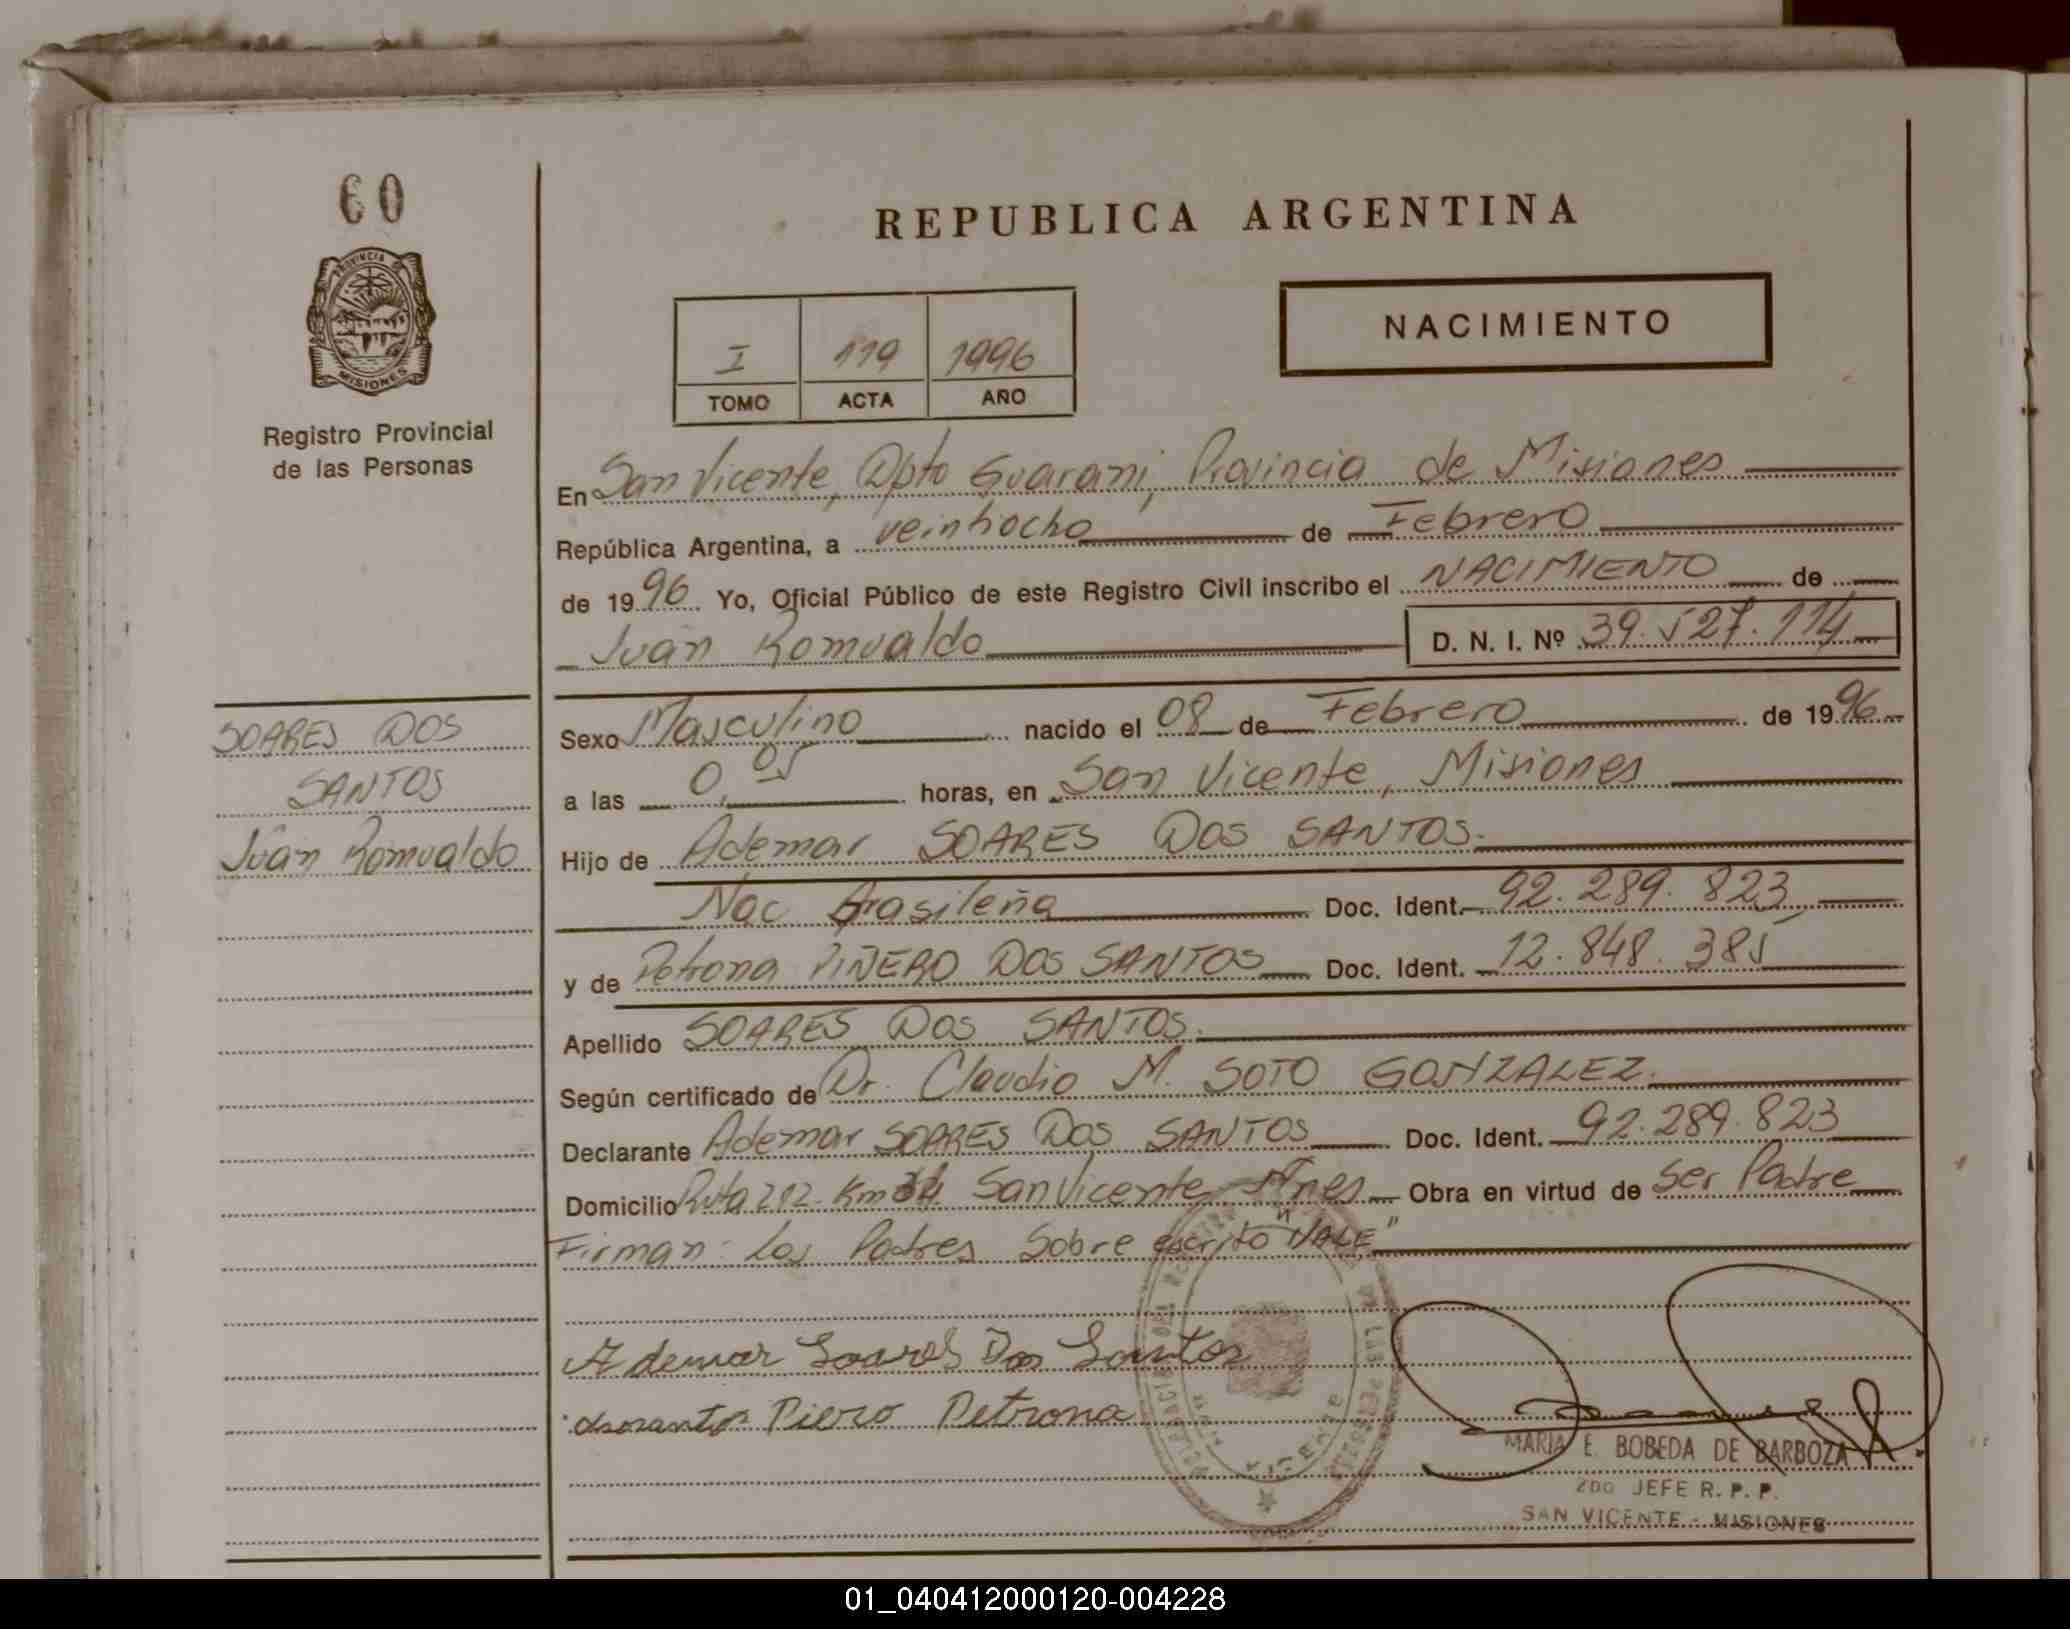 60
PROVINCIA DE
MISIONES
Registro Provincial
de las Personas
REPUBLICA ARGENTINA
NACIMIENTO
I 119 1996
TOMO ACTA AÑO
En San Vicente, Dpto Guarani, Provincia de Misiones
República Argentina, a veintiocho de Febrero
de 1996. Yo, Oficial Público de este Registro Civil inscribo el NACIMIENTO de
Juan Romualdo D. N. I. Nº 39.527.114
SOARES DOS
SANTOS
Juan Romualdo
Sexo Masculino nacido el 08 de Febrero de 1996
a las 0,05 horas, en San Vicente, Misiones
Hijo de Ademar SOARES DOS SANTOS.
Nac Brasileña Doc. Ident. 92.289.823
y de Petrona PIÑERO DOS SANTOS Doc. Ident. 12.848.385
Apellido SOARES DOS SANTOS.
Según certificado de Dr. Claudio M. SOTO GONZALEZ.
Declarante Ademar SOARES DOS SANTOS Doc. Ident. 92.289.823
Domicilio Ruta 212 Km San Vicente Mnes Obra en virtud de Ser Padre
Firman: Los Padres Sobre escrito "VALE"
Ademar Soares Dos Santos
Piero Petrona
MARIA E. BOBEDA DE BARBOZA
2DO JEFE R. P. P.
SAN VICENTE - MISIONES
01_040412000120-004228